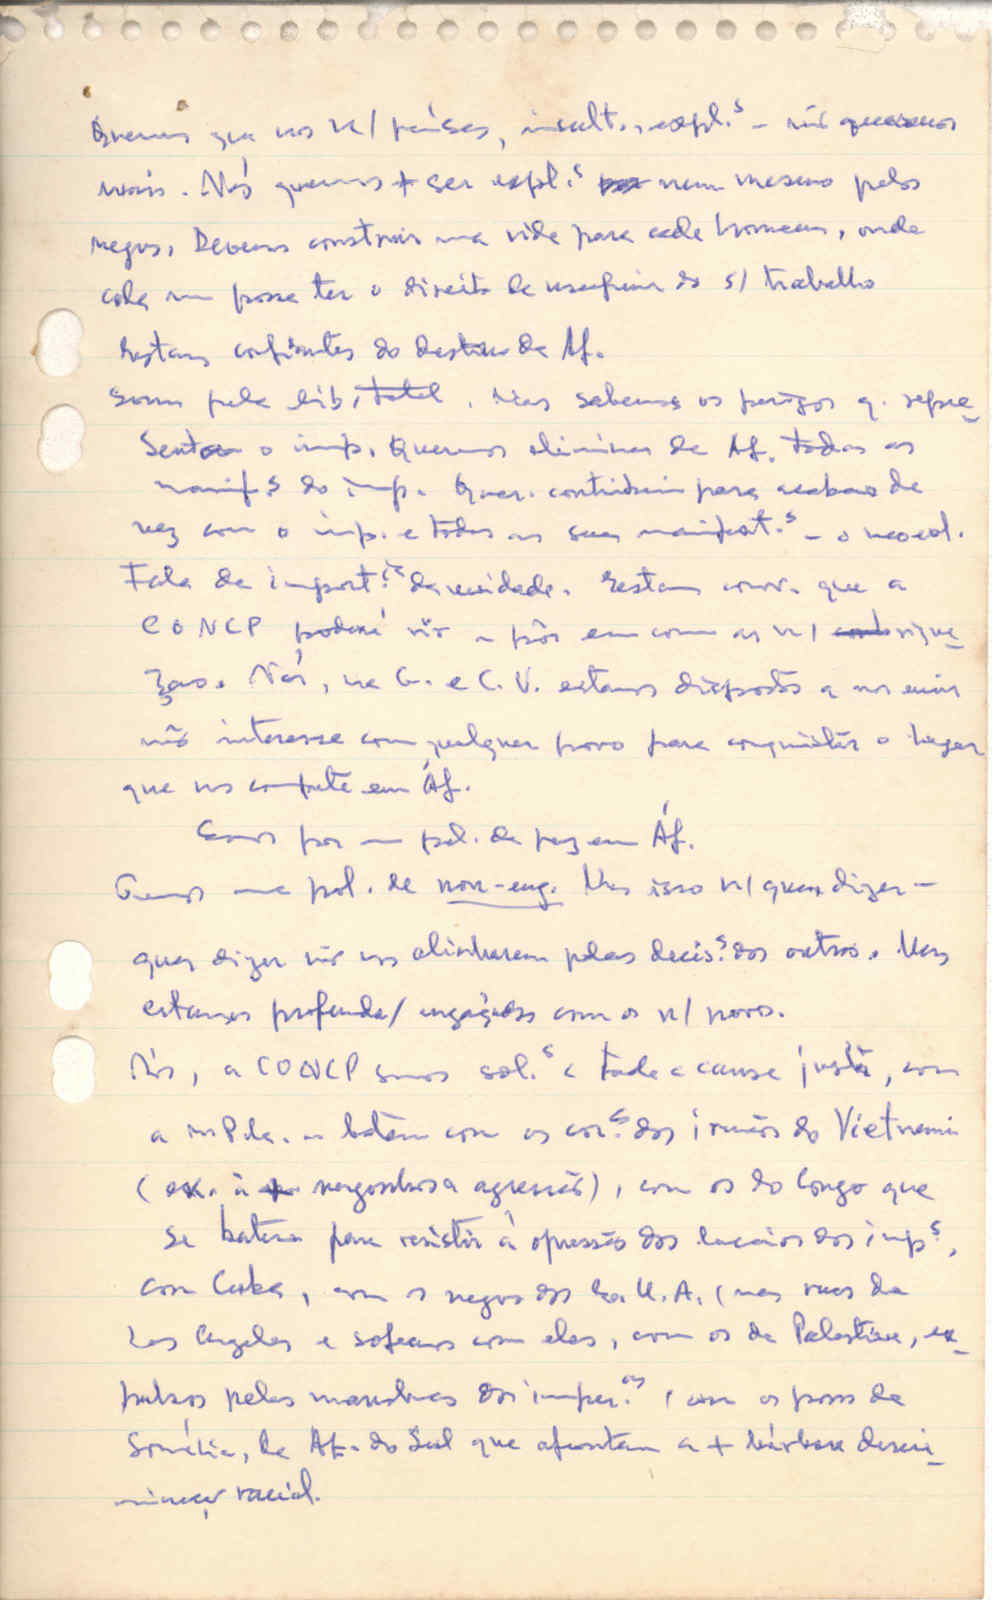 Queremos que nos n/ países, insult., expl.s – não queremos
mais. Nós queremos + ser expl.s nem mesmo pelos
negros. Devemos construir uma vida para cada homem, onde
cada um possa ter o direito de usufruir do s/ trabalho
Estamos confiantes do destino de Áf.
Somos pela lib. total. Mas sabemos os perigos q. repre-
senta o imp. Queremos eliminar de Áf. todas as
manif.s do imp. Quer. contribuir para acabar de
vez com o imp. e todas as suas manifest.s – o neocol.
Fala da import.cia da unidade. Estamos conv. que a
CONCP poderá vir a pôr em comum as n/
Nós, na G. e C.V. estamos dispostos a nos unir
interesse com qualquer povo para conquistar o lugar
que nos compete em Áf.
Somos por uma pol. de paz em Áf.
Temos uma pol. de non-eng. Mas isso n/ quer dizer –
quer dizer não nos alinharem pelas decis.s dos outros. Mas
estamos profunda/ engajados com os n/ povos.
Nós, a CONCP somos sol.s c/ toda a causa justa, com
a batem com os cor.s dos irmãos do Vietnam
(ex. à + vergonhosa agressão), com os do Congo que
se batem para resistir à opressão dos lacaios dos imp.s,
com Cuba, com os negros dos E.U.A. (nas ruas de
Los Angeles e sofremos com eles, com os da Palestina, ex-
pulsos pelas manobras dos imper.as, com os povos da
Somália, da Áf. do Sul que afrontam a + bárbara descri-
minação racial.